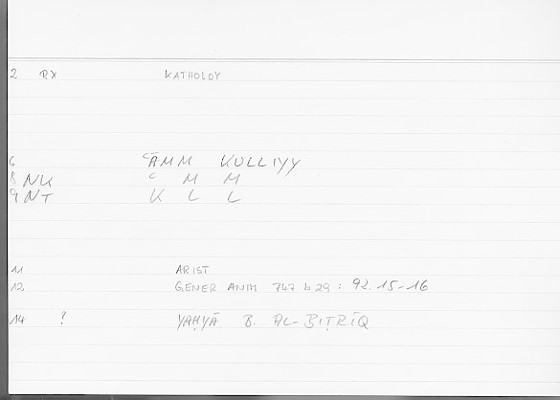 2 RX KATHOLOY
6 ʿĀMM KULLIYY
8 NK ʿ M M
9 NT K L L
11 ARIST
12 GENER ANIM 747 b 29 : 92.15-16
14 ? YAḤYĀ B. AL-BIṬRĪQ